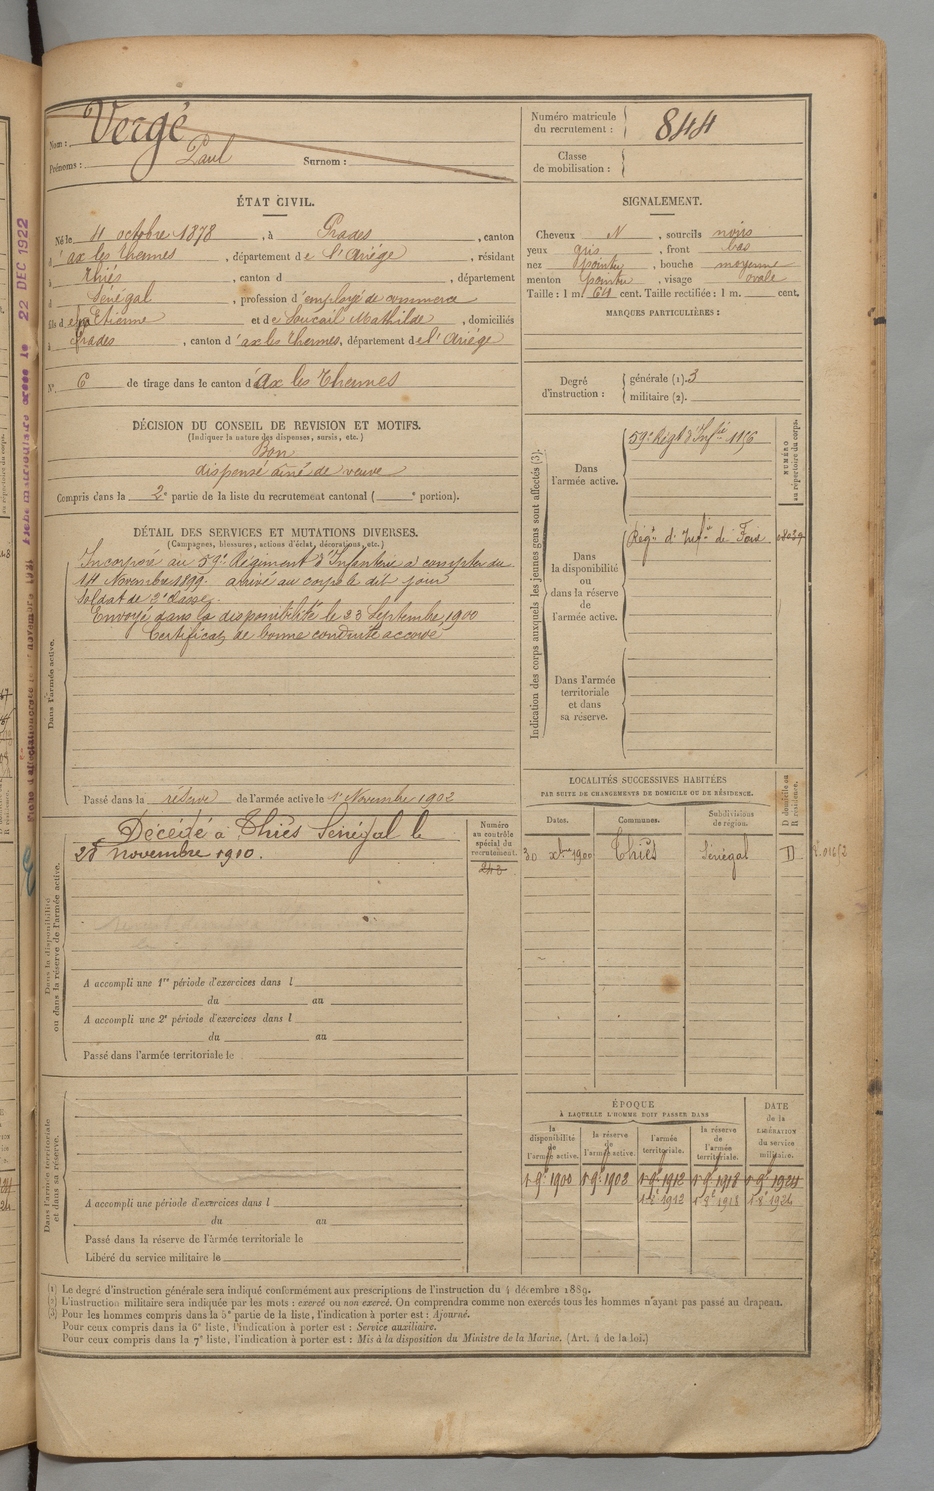 Nom : Vergé
Prénoms : Paul Surnom :
Numéro matricule du recrutement : 844
Classe de mobilisation :
ÉTAT CIVIL.
Né le 4 octobre 1878, à Prades, canton
d'ax les Thermes, département de l'Ariége, résidant
à Thiés, canton d , département
d Sénégal, profession d'employé de commerce
fils d Etienne et de Soucail Mathilde, domiciliés
à Prades, canton d'ax les Thermes, département de l'Ariége
N° 6 de tirage dans le canton d'Ax les Thermes
SIGNALEMENT.
Cheveux N, sourcils noirs
yeux gris, front bas
nez pointu, bouche moyenne
menton pointu, visage ovale
Taille : 1 m. 64 cent. Taille rectifiée : 1 m. cent.
MARQUES PARTICULIÈRES :
Degré d'instruction : générale (1). 3
militaire (2).
DÉCISION DU CONSEIL DE REVISION ET MOTIFS.
(Indiquer la nature des dispenses, sursis, etc.)
Bon
dispensé aîné de veuve
Compris dans la 2e partie de la liste du recrutement cantonal ( e portion).
DÉTAIL DES SERVICES ET MUTATIONS DIVERSES.
(Campagnes, blessures, actions d'éclat, décorations, etc.)
Dans l'armée active.
Incorporé au 59e Régiment d'Infanterie à compter du
14 Novembre 1899. arrivé au corps le dit jour
Soldat de 2e classe.
Envoyé dans la disponibilité le 23 Septembre 1900
Certificat de bonne conduite accordé
Passé dans la réserve de l'armée active le 1er Novembre 1902
Indication des corps auxquels les jeunes gens sont affectés (3).
NUMÉRO au répertoire du corps.
Dans l'armée active.
59e Régt d'Infie 1156
Dans la disponibilité ou dans la réserve de l'armée active.
Régt d'Infie de Foix
Dans l'armée territoriale et dans sa réserve.
Dans la disponibilité ou dans la réserve de l'armée active.
Décédé à Thiès Sénégal le
28 novembre 1910.
Numéro au contrôle spécial du recrutement.
A accompli une 1re période d'exercices dans l
du au
A accompli une 2e période d'exercices dans l
du au
Passé dans l'armée territoriale le
LOCALITÉS SUCCESSIVES HABITÉES
PAR SUITE DE CHANGEMENTS DE DOMICILE OU DE RÉSIDENCE.
D domicile ou R résidence.
Dates. Communes. Subdivisions de région.
30 xbre 1900 Thiès Sénégal D
Dans l'armée territoriale et dans sa réserve.
A accompli une période d'exercices dans l
du au
Passé dans la réserve de l'armée territoriale le
Libéré du service militaire le
ÉPOQUE
À LAQUELLE L'HOMME DOIT PASSER DANS
DATE de la LIBÉRATION du service militaire.
la disponibilité de l'armée active. la réserve de l'armée active. l'armée territoriale. la réserve de l'armée territoriale.
1er 9bre 1900 1er 9bre 1902 1er 9bre 1912 1er 9bre 1918 1er 9bre 1924
1er 8bre 1912 1er 8bre 1918 1er 8bre 1924
(1) Le degré d'instruction générale sera indiqué conformément aux prescriptions de l'instruction du 4 décembre 1889.
(2) L'instruction militaire sera indiquée par les mots : exercé ou non exercé. On comprendra comme non exercés tous les hommes n'ayant pas passé au drapeau.
(3) Pour les hommes compris dans la 5e partie de la liste, l'indication à porter est : Ajourné.
Pour ceux compris dans la 6e liste, l'indication à porter est : Service auxiliaire.
Pour ceux compris dans la 7e liste, l'indication à porter est : Mis à la disposition du Ministre de la Marine. (Art. 4 de la loi.)
22 DEC 1922